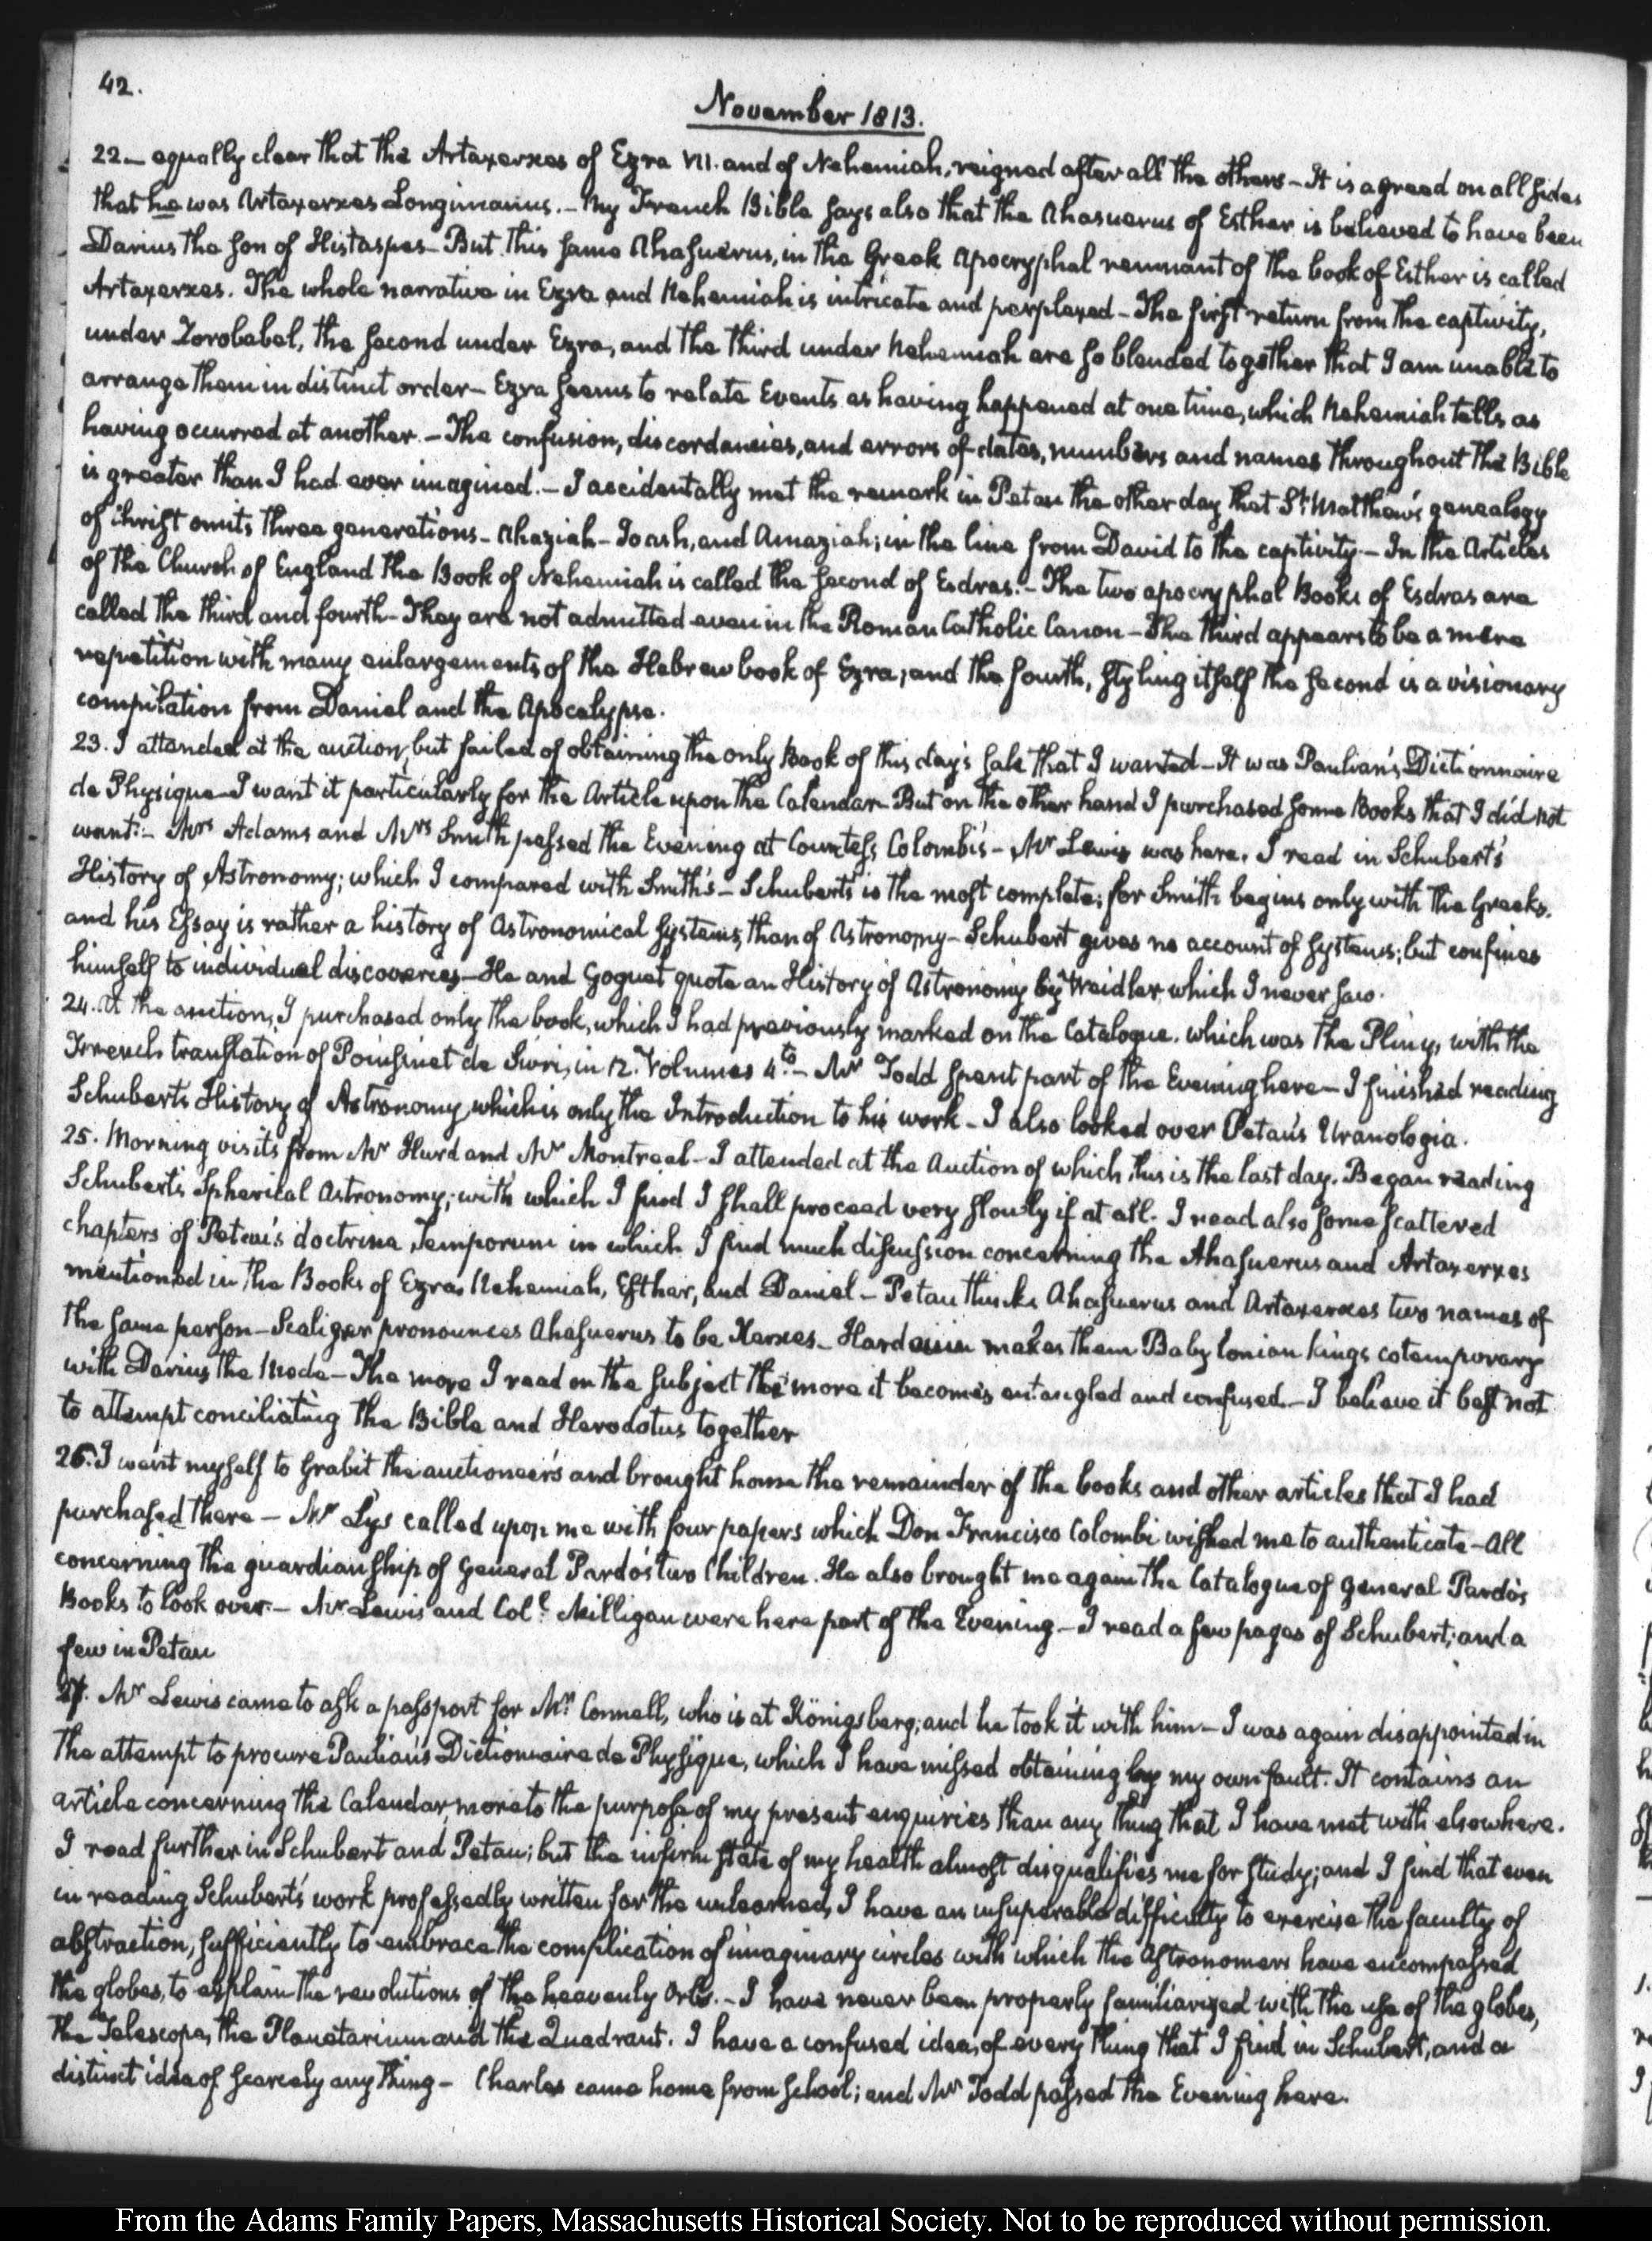 42.
November 1813.
22 — equally clear that the Artaxerxes of Ezra VII. and of Nehemiah, reigned after all the others — It is agreed on all sides
that he was Artaxerxes Longimanus. — My French Bible says also that the Ahasuerus of Esther is believed to have been
Darius the son of Histaspes — But this same Ahasuerus, in the Greek Apocryphal remnant of the book of Esther is called
Artaxerxes. The whole narrative in Ezra and Nehemiah is intricate and perplexed — The first return from the captivity,
under Zorobabel, the second under Ezra, and the third under Nehemiah are so blended together that I am unable to
arrange them in distinct order — Ezra seems to relate Events as having happened at one time, which Nehemiah tells as
having occurred at another. — The confusion, discordancies, and errors of dates, numbers and names throughout the Bible
is greater than I had ever imagined. — I accidentally met the remark in Petau the other day that St. Matthew's genealogy
of Christ omits three generations — Ahaziah — Joash, and Amaziah; in the line from David to the captivity — In the Articles
of the Church of England the Book of Nehemiah is called the second of Esdras. — The two apocryphal Books of Esdras are
called the third and fourth — They are not admitted even in the Roman Catholic Canon — The third appears to be a mere
repetition with many enlargements of the Hebrew book of Ezra; and the fourth, styling itself the second is a visionary
compilation from Daniel and the Apocalypse.
23. I attended at the auction, but failed of obtaining the only Book of this day's sale that I wanted — It was Paulian's Dictionnaire
de Physique — I want it particularly for the Article upon the Calendar — But on the other hand I purchased some Books that I did not
want. — Mrs Adams and Mrs Smith passed the Evening at Countess Colombi's — Mr Lewis was here. I read in Schubert's
History of Astronomy; which I compared with Smith's — Schubert's is the most complete; for Smith begins only with the Greeks.
and his Essay is rather a history of Astronomical Systems, than of Astronomy — Schubert gives no account of systems; but confines
himself to individual discoveries — He and Goguet quote an History of Astronomy by Weidler which I never saw.
24. At the auction, I purchased only the book, which I had previously marked on the Catalogue. which was the Pliny, with the
French translation of Poinsinet de Sivri, in 12. Volumes 4to — Mr Todd spent part of the Evening here — I finished reading
Schubert's History of Astronomy, which is only the Introduction to his work — I also looked over Petau's Uranologia.
25. Morning visits from Mr Hurd and Mr Montreal — I attended at the Auction of which this is the last day. Began reading
Schubert's Spherical Astronomy; with which I find I shall proceed very slowly if at all. I read also some scattered
chapters of Petau's doctrina Temporum in which I find much discussion concerning the Ahasuerus and Artaxerxes
mentioned in the Books of Ezra, Nehemiah, Esther, and Daniel — Petau thinks Ahasuerus and Artaxerxes two names of
the same person — Scaliger pronounces Ahasuerus to be Xerxes — Hardouin makes them Babylonian kings cotemporary
with Darius the Mede — The more I read on the subject the more it becomes entangled and confused — I believe it best not
to attempt conciliating the Bible and Herodotus together
26. I went myself to Grabit the auctioneer's and brought home the remainder of the books and other articles that I had
purchased there — Mr Lys called upon me with four papers which Don Francisco Colombi wished me to authenticate — All
concerning the guardianship of General Pardo's two Children. He also brought me again the Catalogue of General Pardo's
Books to look over. — Mr Lewis and Coll. Milligan were here part of the Evening — I read a few pages of Schubert; and a
few in Petau
27. Mr Lewis came to ask a passport for Mr Connell, who is at Königsberg; and he took it with him — I was again disappointed in
the attempt to procure Paulian's Dictionnaire de Physique, which I have missed obtaining by my own fault. It contains an
article concerning the Calendar, more to the purpose of my present enquiries than any thing that I have met with elsewhere.
I read further in Schubert and Petau; but the infirm state of my health almost disqualifies me for study; and I find that even
in reading Schubert's work professedly written for the unlearned, I have an insuperable difficulty to exercise the faculty of
abstraction, sufficiently to embrace the complication of imaginary circles with which the Astronomers have encompassed
the globes, to explain the revolutions of the heavenly Orbs. — I have never been properly familiarized with the use of the globes,
the Telescope, the Planetarium and the Quadrant. I have a confused idea, of every thing that I find in Schubert, and a
distinct idea of scarcely any thing — Charles came home from school; and Mr Todd passed the Evening here.
From the Adams Family Papers, Massachusetts Historical Society. Not to be reproduced without permission.